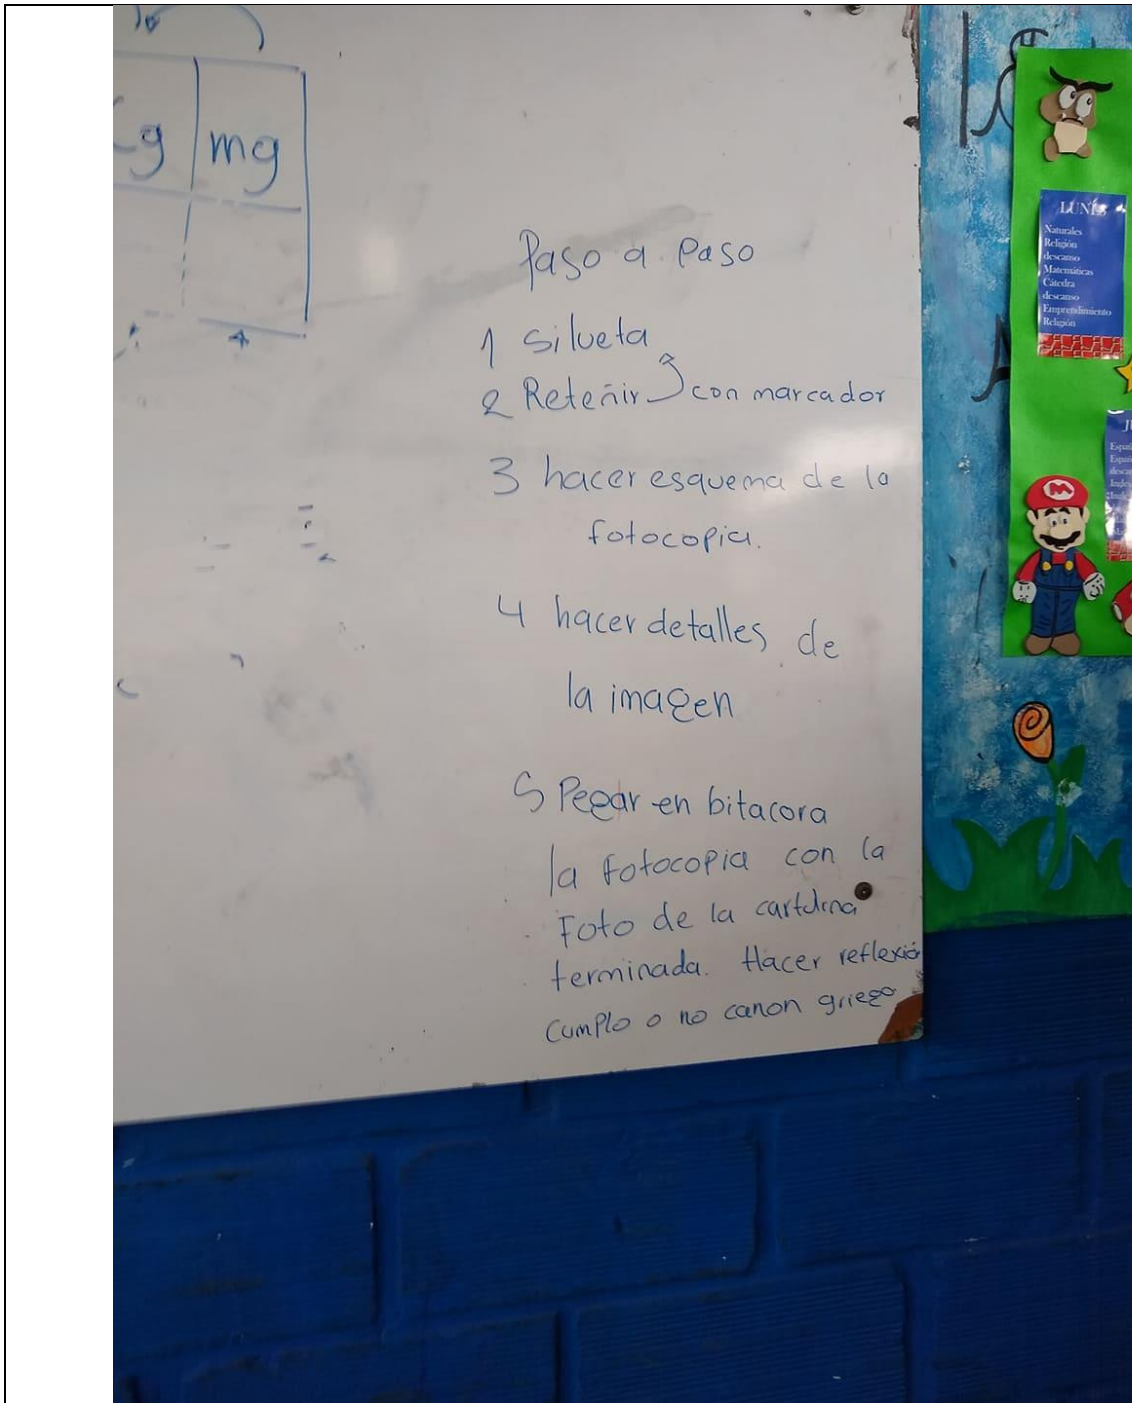 mg
Paso a Paso
1 Silueta
2 Reteñir con marcador
3 hacer esquema de la
fotocopia.
4 hacer detalles de
la imagen
5 Pegar en bitacora
la fotocopia con la
Foto de la cartulina
terminada. Hacer reflexió
cumplo o no canon griego
LUNES
Naturales
Religión
descanso
Matemáticas
Cátedra
descanso
Emprendimiento
Religión
M